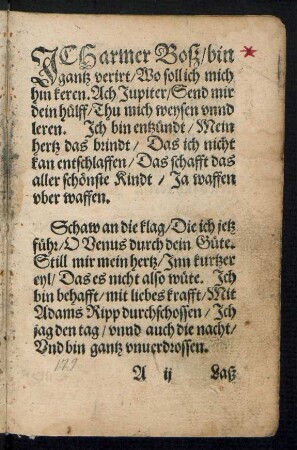 ICH armer Boſz/bin
gantz verirt/Wo ſoll ich mich
hin keren. Ach Jupiter/Send mir
dein hülff/Thu mich weyſen vnnd
leren. Ich bin entzündt/Mein
hertz das brindt/Das ich nicht
kan entſchlaffen/Das ſchafft das
aller ſchönſte Kindt/Ja waffen
vber waffen.
Schaw an die klag/Die ich jetz
führ/O Venus durch dein Güte.
Still mir mein hertz/Inn kurtzer
eyl/Das es nicht alſo wüte. Ich
bin behafft/mit liebes krafft/Mit
Adams Ripp durchſchoſſen/Ich
jag den tag/vnnd auch die nacht/
Vnd bin gantz vnuerdroſſen.
179
A ij Laſz